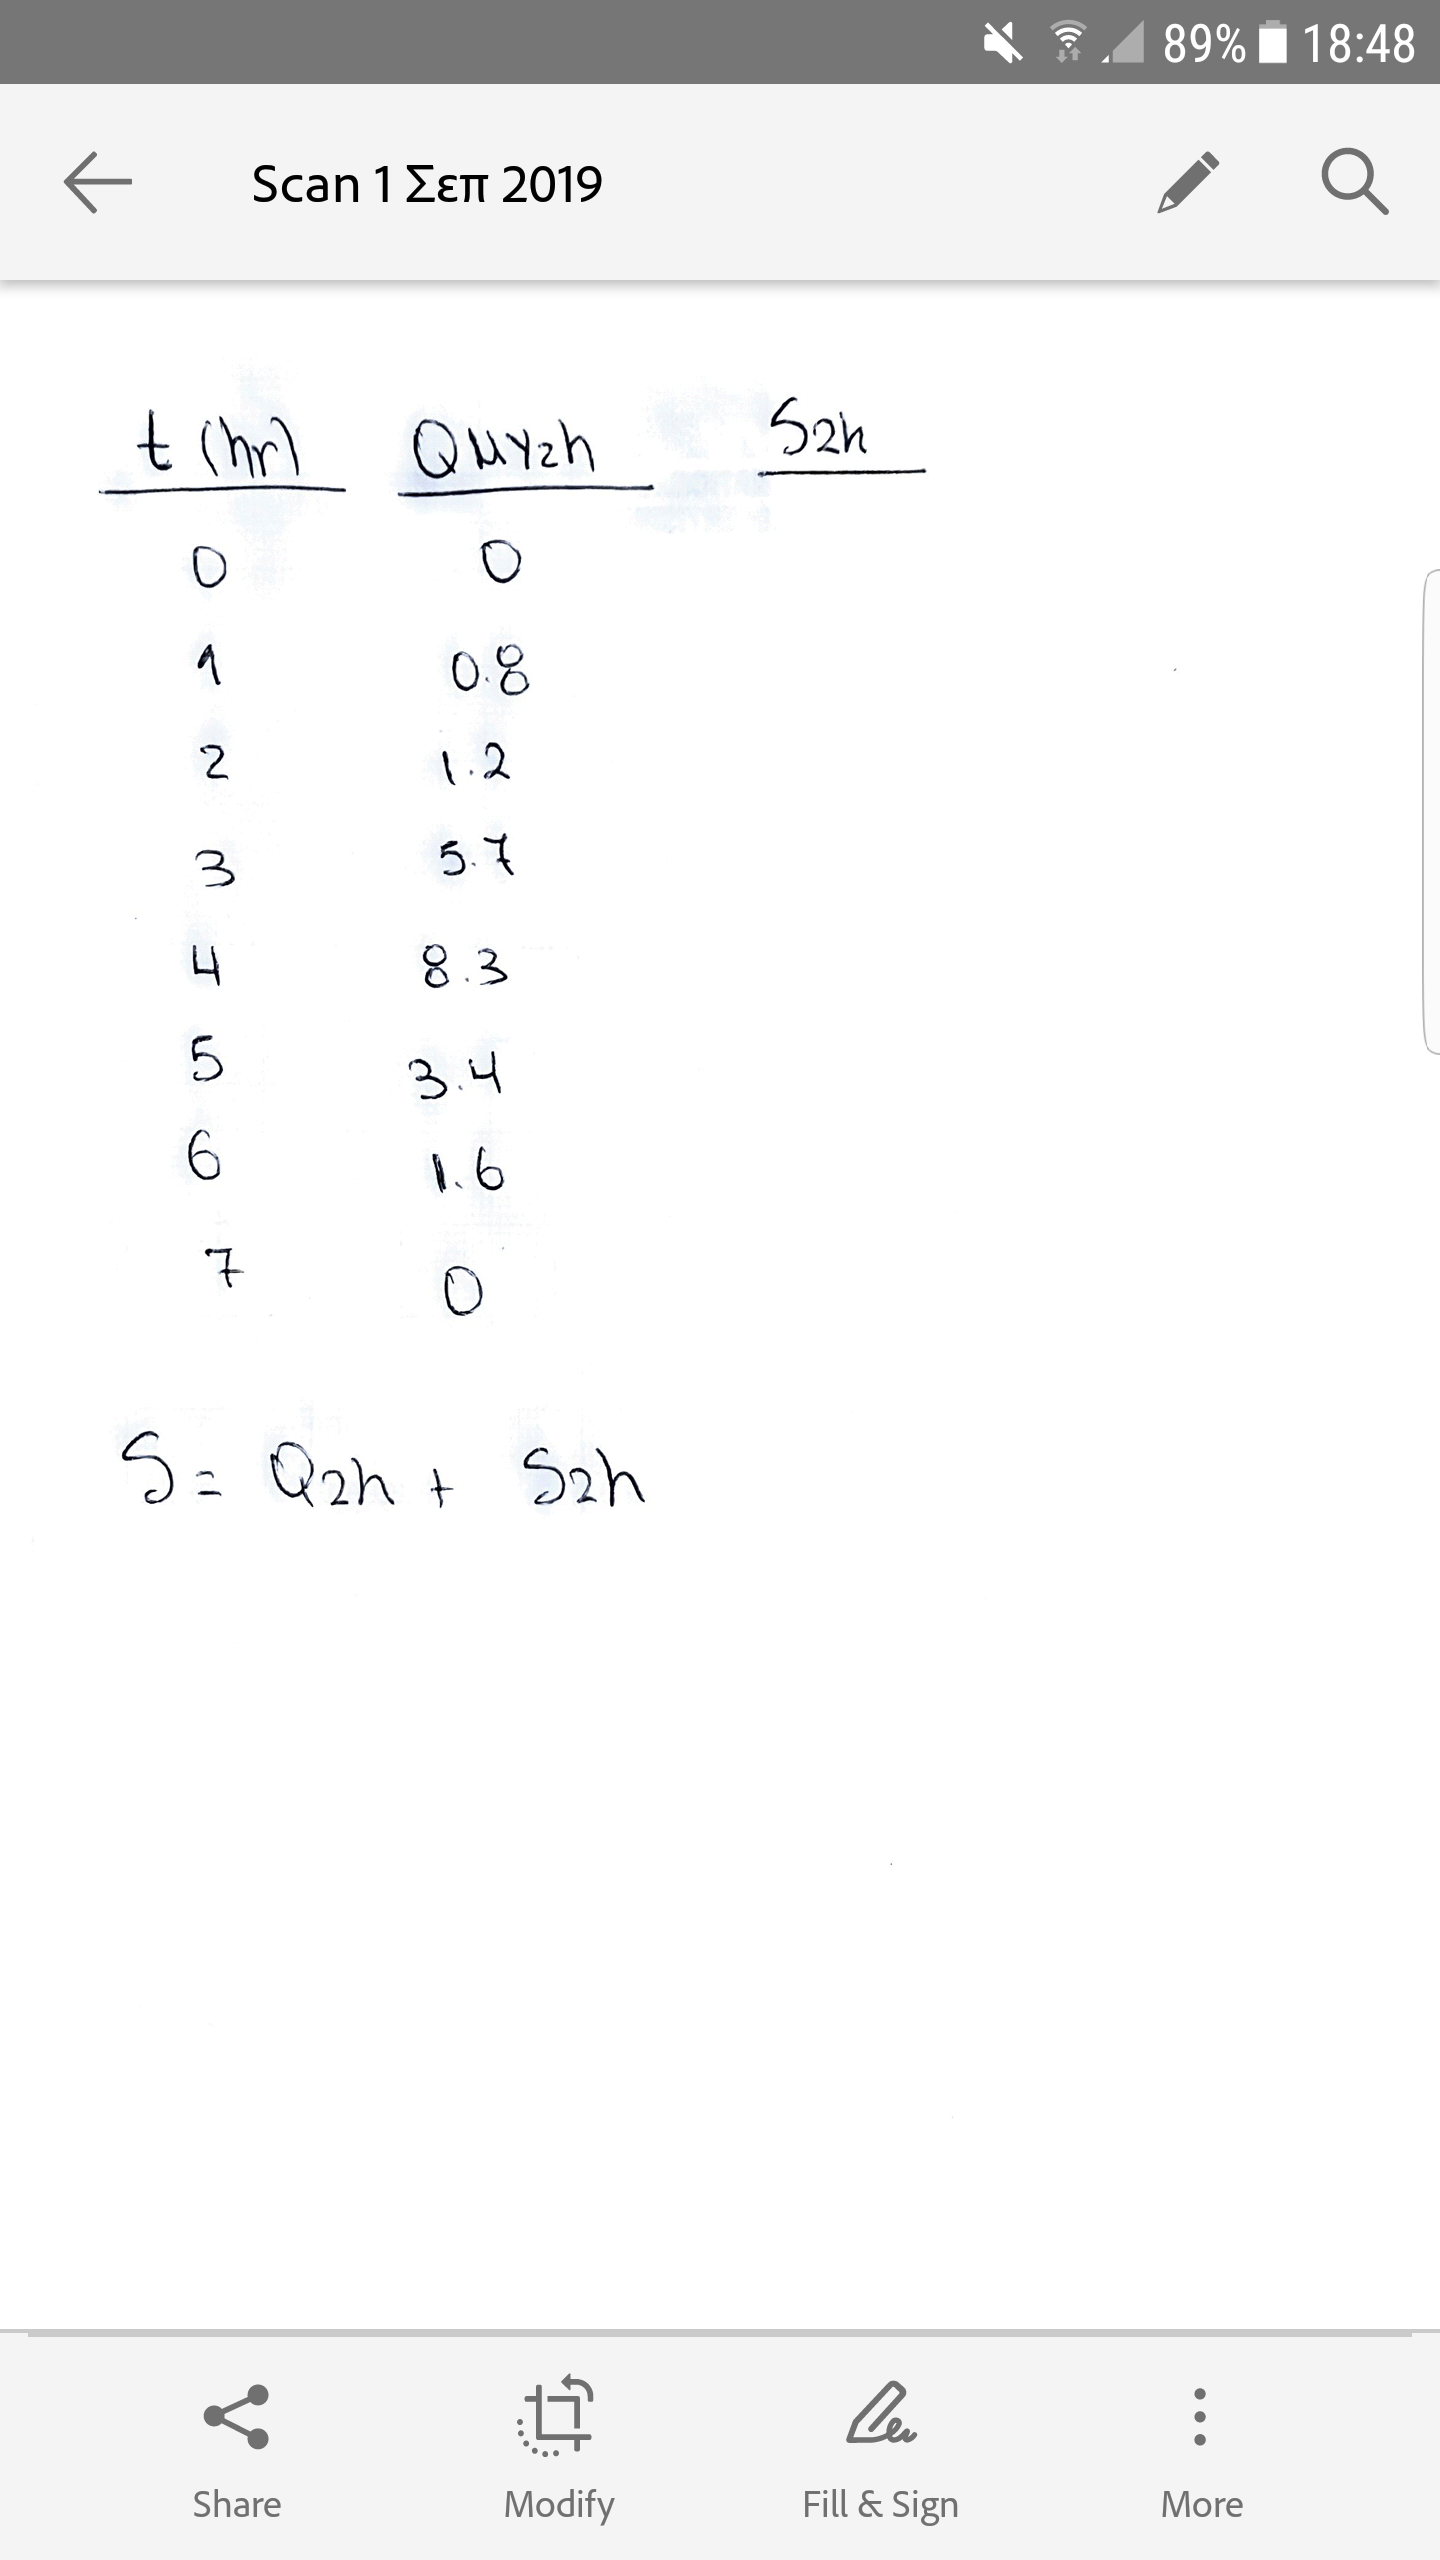 89% 18:48
Scan 1 Σεπ 2019
t (hr) QMY2h S2h
0 0
1 0.8
2 1.2
3 5.7
4 8.3
5 3.4
6 1.6
7 0
S= Q2h + S2h
Share Modify Fill & Sign More